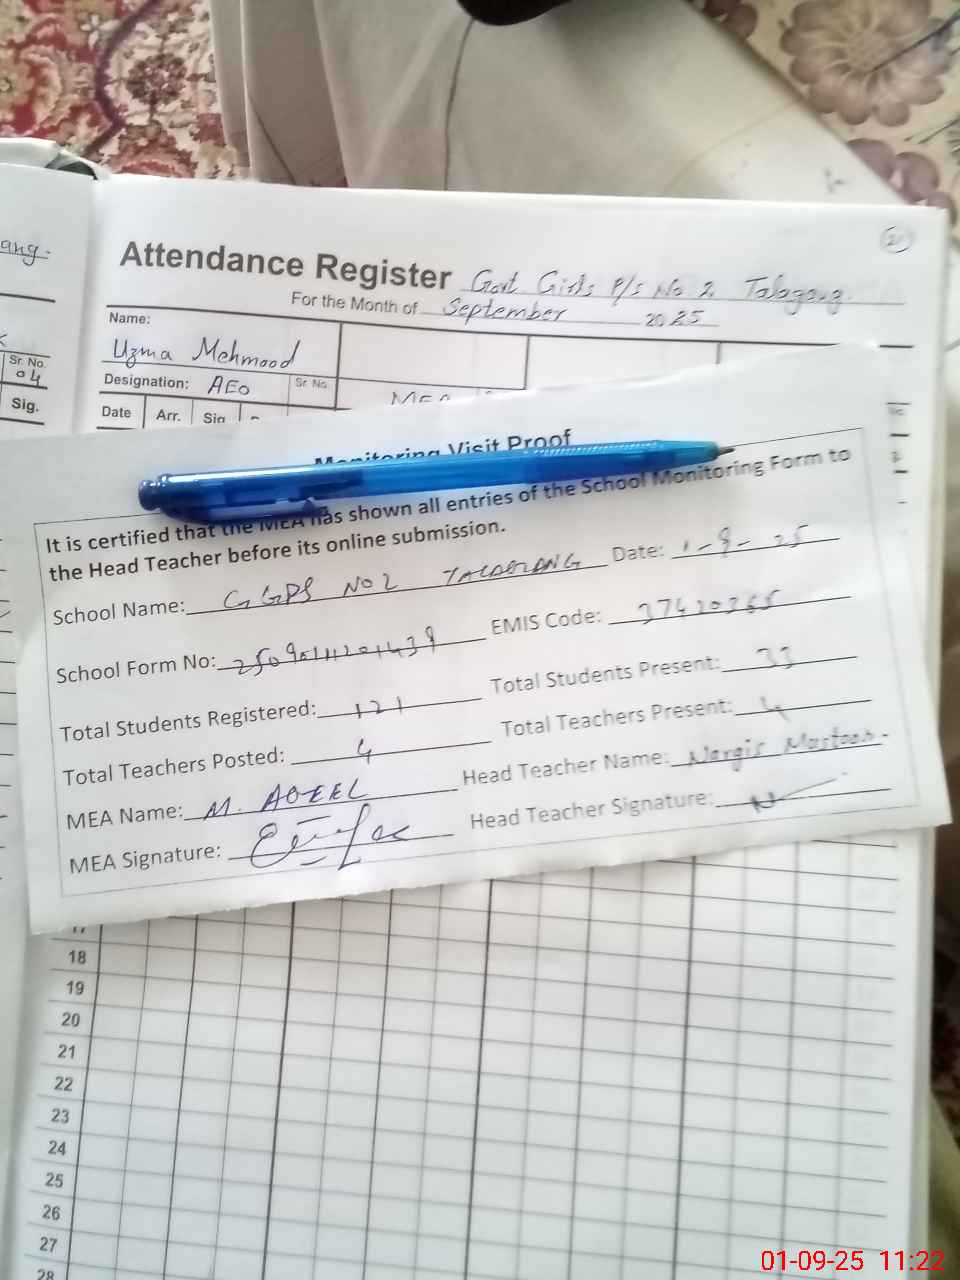 ang.
Sr. No.
04
Sig.
21
Attendance Register Govt Girls P/S No 2 Talagang
For the Month of September 2025
Name:
Uzma Mehmood
Designation: AEO Sr. No.
Date Arr. Sig
MEA
Monitoring Visit Proof
It is certified that the MEA has shown all entries of the School Monitoring Form to
the Head Teacher before its online submission.
School Name: GGPS NO 2 TALAGANG Date: 1-9-25
School Form No: EMIS Code: 37420365
Total Students Registered: 121 Total Students Present: 33
Total Teachers Posted: 4 Total Teachers Present: 4
MEA Name: M. AQEEL Head Teacher Name: Nargis
MEA Signature: Head Teacher Signature:
17
18
19
20
21
22
23
24
25
26
27
28
01-09-25 11:22